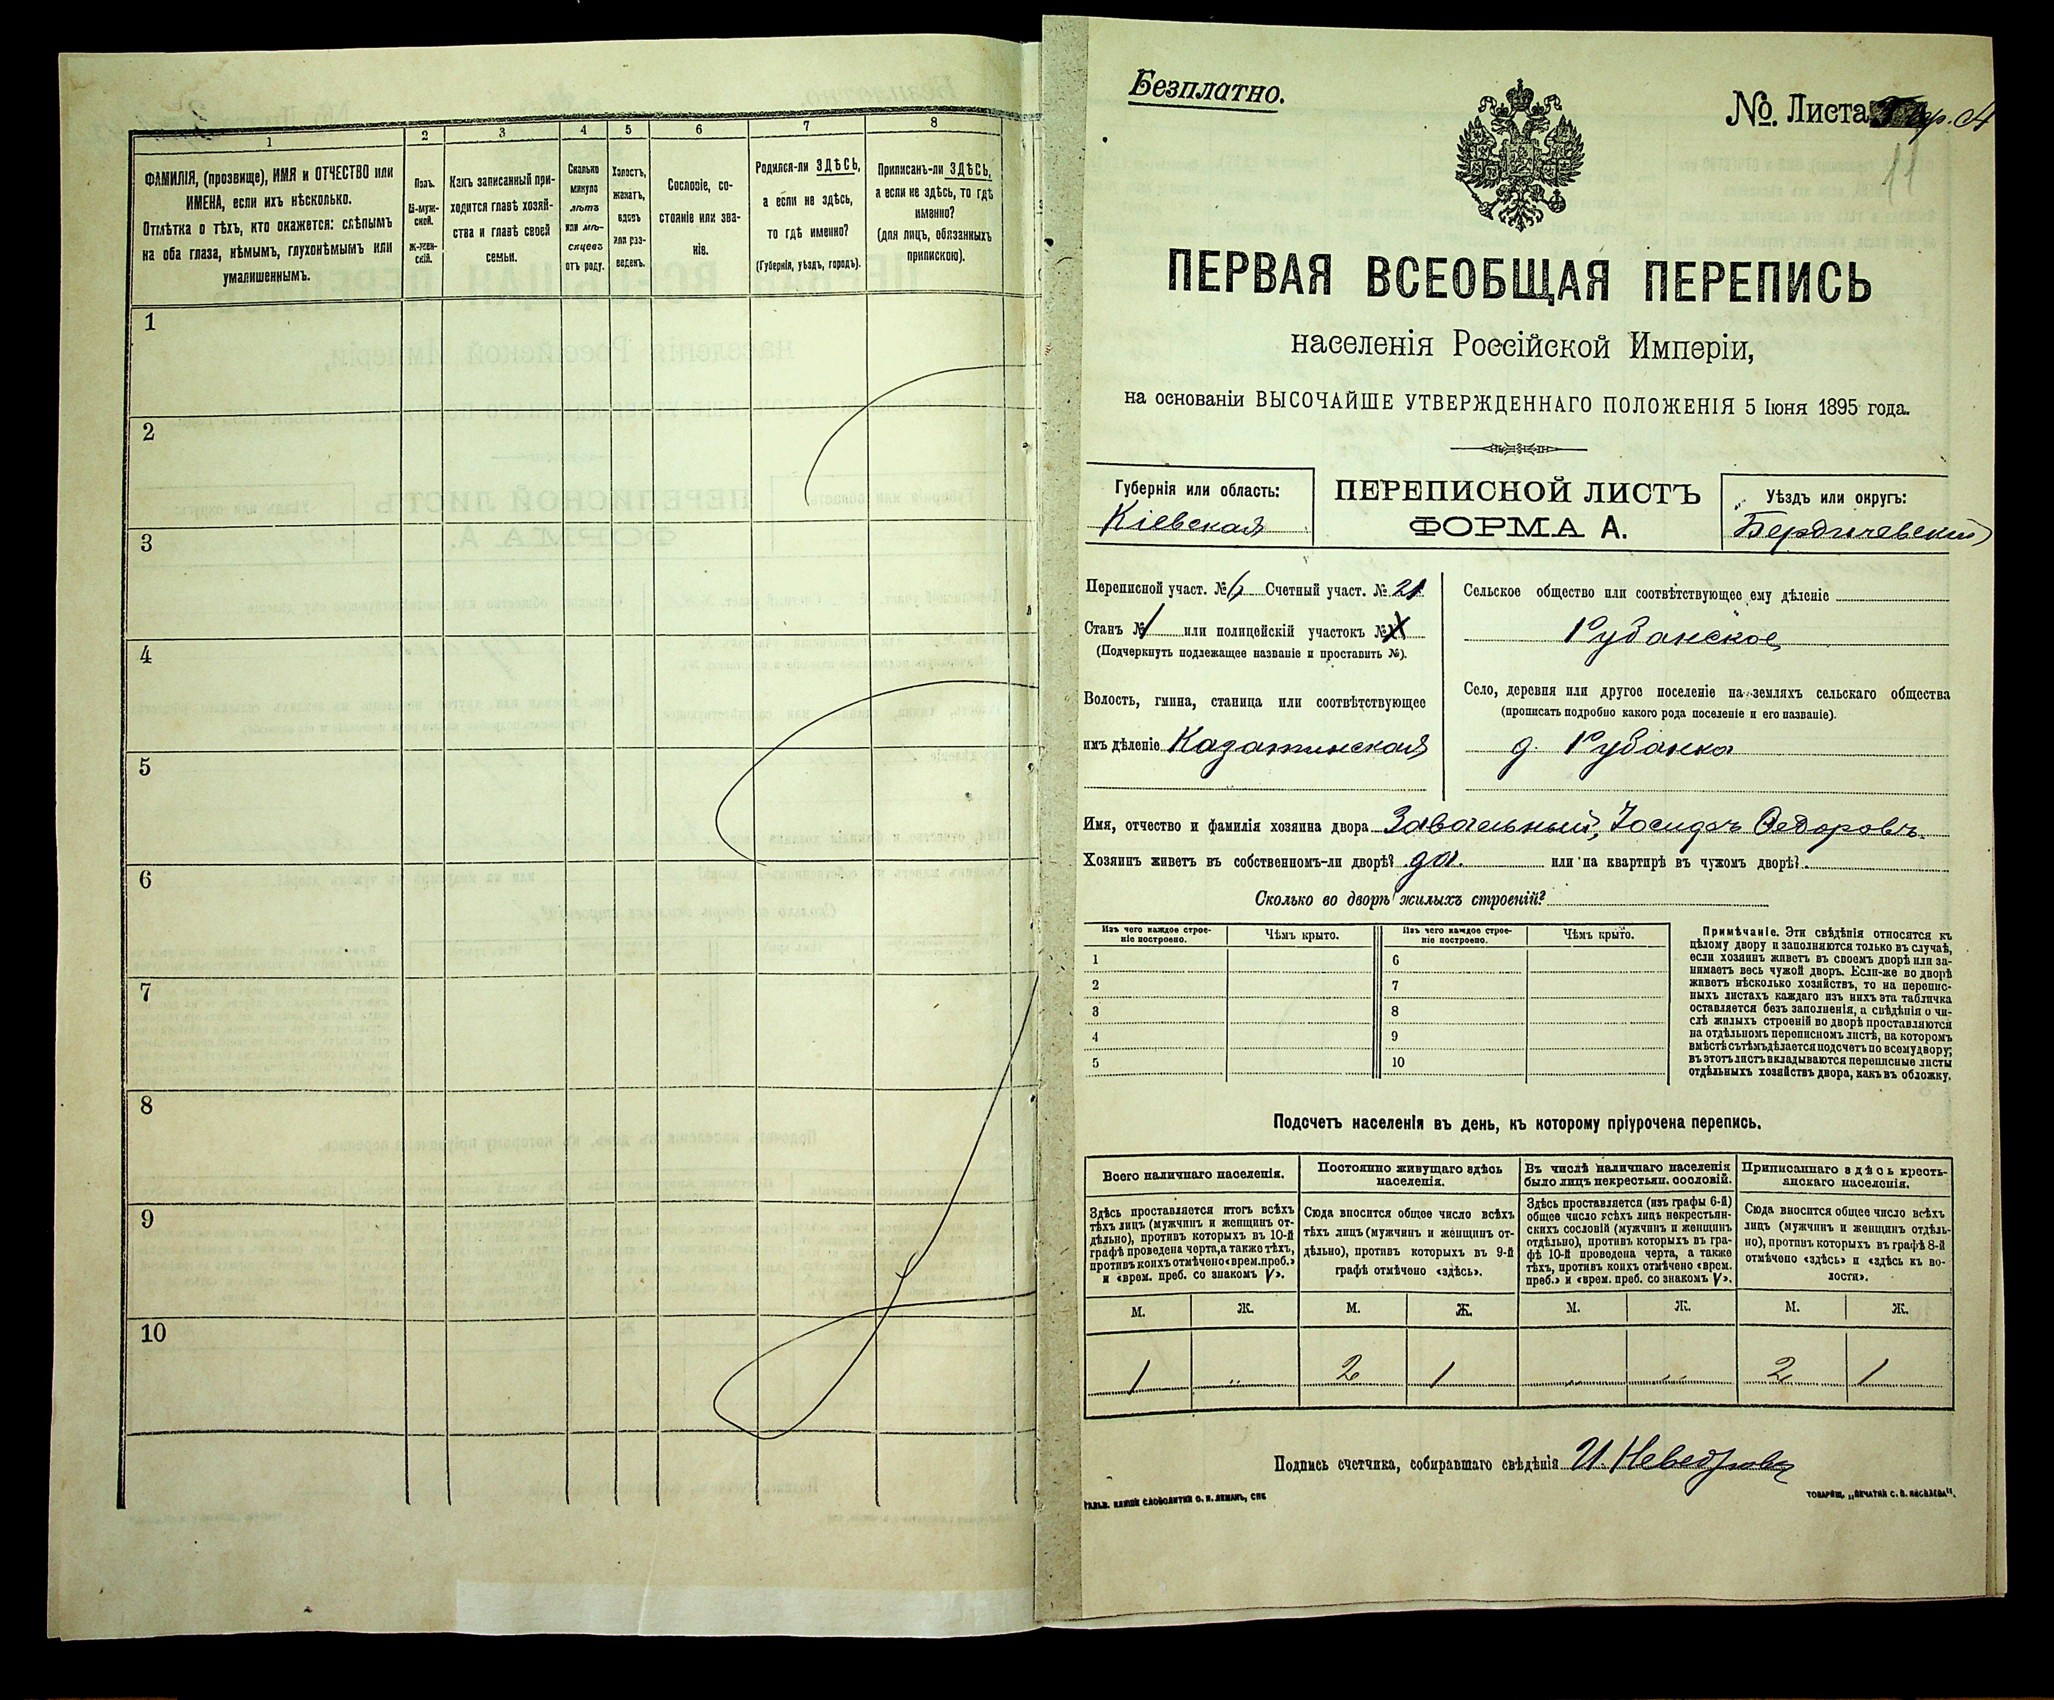 1 2 3 4 5 6 7 8
ФАМИЛІЯ, (прозвище), ИМЯ и ОТЧЕСТВО или
ИМЕНА, если ихъ нѣсколько.
Отмѣтка о тѣхъ, кто окажется: слѣпымъ
на оба глаза, нѣмымъ, глухонѣмымъ или
умалишеннымъ.
Полъ.
М-муж-
ской.
ж-жен-
скій.
Какъ записанный при-
ходится главѣ хозяй-
ства и главѣ своей
семьи.
Сколько
минуло
лѣтъ
или мѣ-
сяцевъ
отъ роду.
Холостъ,
женатъ,
вдовъ
или раз-
веденъ.
Сословіе, со-
стояніе или зва-
ніе.
Родился-ли ЗДѢСЬ,
а если не здѣсь,
то гдѣ именно?
(Губернія, уѣздъ, городъ).
Приписанъ-ли ЗДѢСЬ,
а если не здѣсь, то гдѣ
именно?
(для лицъ, обязанныхъ
припискою).
1
2
3
4
5
6
7
8
9
10
Безплатно.
№. Листа
11
ПЕРВАЯ ВСЕОБЩАЯ ПЕРЕПИСЬ
населенія Россійской Имперіи,
на основаніи ВЫСОЧАЙШЕ УТВЕРЖДЕННАГО ПОЛОЖЕНІЯ 5 Іюня 1895 года.
Губернія или область:
Кіевская
ПЕРЕПИСНОЙ ЛИСТЪ
ФОРМА А.
Уѣздъ или округъ:
Бердичевскій
Переписной участ. № 6 Счетный участ. № 21
Станъ № 1 или полицейскій участокъ №
(Подчеркнуть подлежащее названіе и проставить №).
Волость, гмина, станица или соотвѣтствующее
имъ дѣленіе Казатинская
Сельское общество или соотвѣтствующее ему дѣленіе
Рубанское
Село, деревня или другое поселеніе на земляхъ сельскаго общества
(прописать подробно какого рода поселеніе и его названіе).
д. Рубанка
Имя, отчество и фамилія хозяина двора Завальный, Іосифъ Федоровъ.
Хозяинъ живетъ въ собственномъ-ли дворѣ? да. или на квартирѣ въ чужомъ дворѣ?
Сколько во дворѣ жилыхъ строеній?
Изъ чего каждое строе-
ніе построено.
Чѣмъ крыто.
Изъ чего каждое строе-
ніе построено.
Чѣмъ крыто.
1 6
2 7
3 8
4 9
5 10
Примѣчаніе. Эти свѣдѣнія относятся къ
цѣлому двору и заполняются только въ случаѣ,
если хозяинъ живетъ въ своемъ дворѣ или за-
нимаетъ весь чужой дворъ. Если-же во дворѣ
живетъ нѣсколько хозяйствъ, то на перепис-
ныхъ листахъ каждаго изъ нихъ эта табличка
оставляется безъ заполненія, а свѣдѣнія о чи-
слѣ жилыхъ строеній во дворѣ проставляются
на отдѣльномъ переписномъ листѣ, на которомъ
вмѣстѣ съ тѣмъ дѣлается подсчетъ по всему двору;
въ этотъ листъ вкладываются переписные листы
отдѣльныхъ хозяйствъ двора, какъ въ обложку.
Подсчетъ населенія въ день, къ которому пріурочена перепись.
Всего наличнаго населенія.
Постоянно живущаго здѣсь
населенія.
Въ числѣ наличнаго населенія
было лицъ некрестьян. сословій.
Приписаннаго здѣсь кресть-
янскаго населенія.
Здѣсь проставляется итогъ всѣхъ
тѣхъ лицъ (мужчинъ и женщинъ от-
дѣльно), противъ которыхъ въ 10-й
графѣ проведена черта, а также тѣхъ,
противъ коихъ отмѣчено «врем. преб.»
и «врем. преб. со знакомъ V».
Сюда вносится общее число всѣхъ
тѣхъ лицъ (мужчинъ и женщинъ от-
дѣльно), противъ которыхъ въ 9-й
графѣ отмѣчено «здѣсь».
Здѣсь проставляется (изъ графы 6-й)
общее число всѣхъ лицъ некрестьян-
скихъ сословій (мужчинъ и женщинъ
отдѣльно), противъ которыхъ въ гра-
фѣ 10-й проведена черта, а также
тѣхъ, противъ коихъ отмѣчено «врем.
преб.» и «врем. преб. со знакомъ V».
Сюда вносится общее число всѣхъ
лицъ (мужчинъ и женщинъ отдѣль-
но), противъ которыхъ въ графѣ 8-й
отмѣчено «здѣсь» и «здѣсь къ во-
лости».
М. Ж. М. Ж. М. Ж. М. Ж.
1 „ 2 1 „ „ 2 1
Подпись счетчика, собиравшаго свѣдѣнія И.